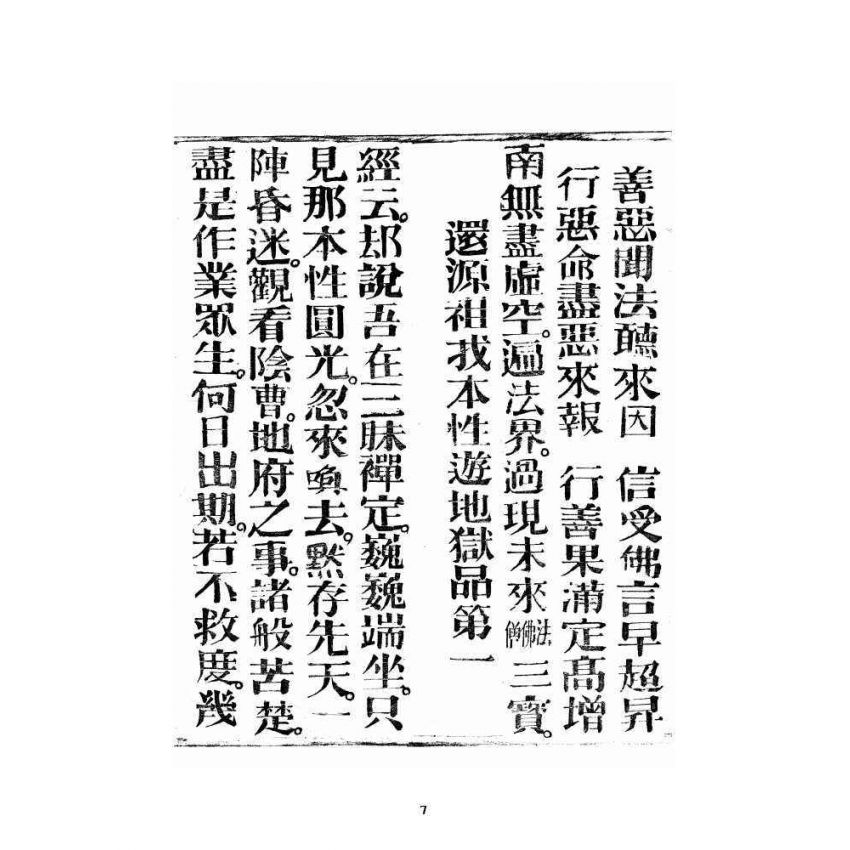 善惡聞法聽來因 信受佛言早超昇
行惡命盡惡來報 行善果滿定高增
南無盡虛空。遍法界。過現未來佛法僧三寶。
還源祖找本性遊地獄品第一
經云。却說吾在三昧禪定。巍巍端坐。只
見那本性圓光。忽來喚去。黙存先天。一
陣昏迷。觀看陰曹。地府之事。諸般苦楚。
盡是作業眾生。何日出期。若不救度。幾
7